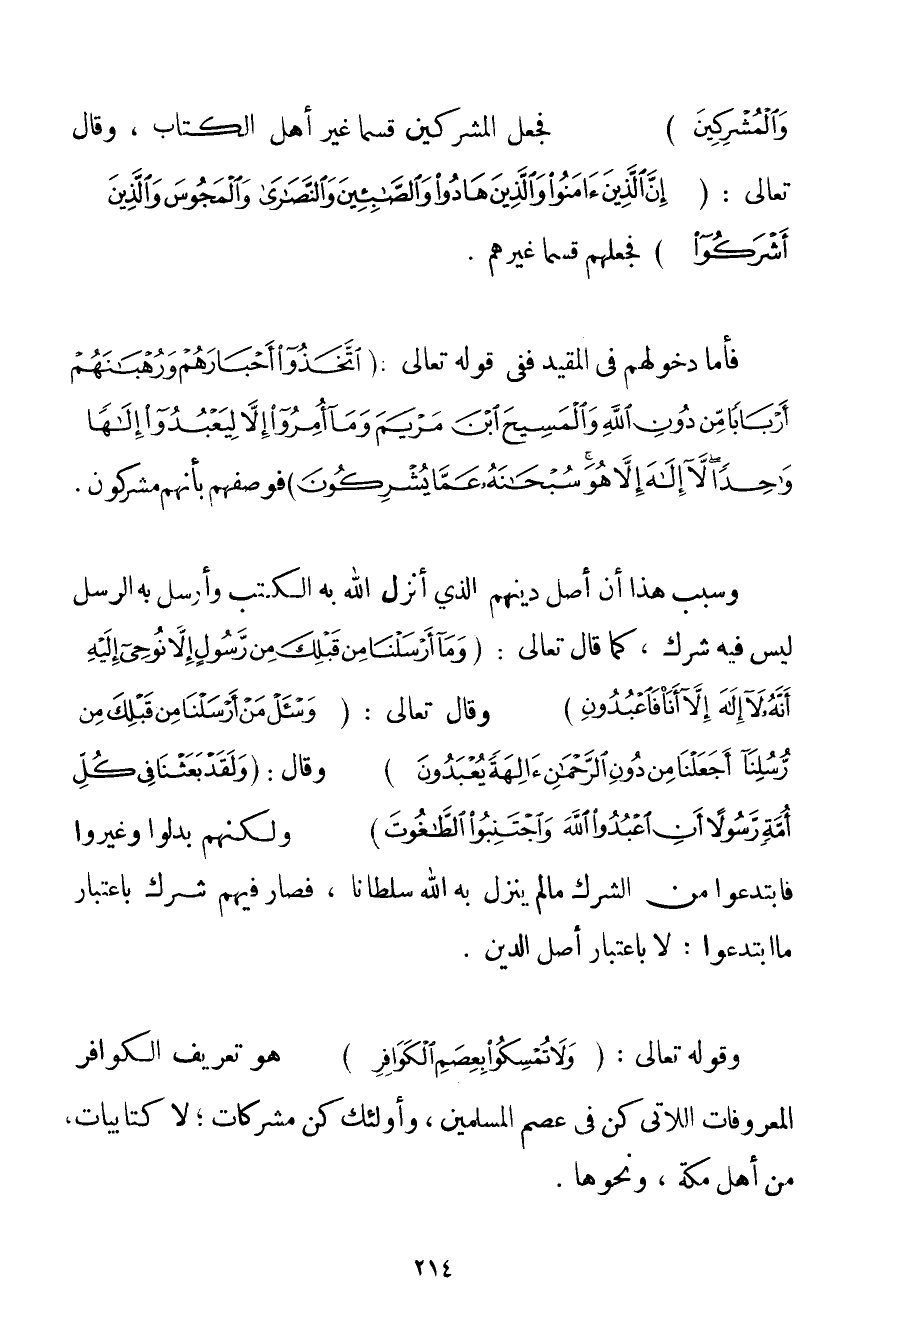 وَٱلْمُشْرِكِينَ ) فجعل المشركين قسما غير أهل الكتاب ، وقال
تعالى : ( إِنَّ ٱلَّذِينَ ءَامَنُوا۟ وَٱلَّذِينَ هَادُوا۟ وَٱلصَّـٰبِـِٔينَ وَٱلنَّصَـٰرَىٰ وَٱلْمَجُوسَ وَٱلَّذِينَ
أَشْرَكُوٓا۟ ) فجعلهم قسما غيرهم .
فأما دخولهم فى المقيد ففي قوله تعالى : ( ٱتَّخَذُوٓا۟ أَحْبَارَهُمْ وَرُهْبَـٰنَهُمْ
أَرْبَابًا مِّن دُونِ ٱللَّهِ وَٱلْمَسِيحَ ٱبْنَ مَرْيَمَ وَمَآ أُمِرُوٓا۟ إِلَّا لِيَعْبُدُوٓا۟ إِلَـٰهًا
وَٰحِدًا ۖ لَّآ إِلَـٰهَ إِلَّا هُوَ ۚ سُبْحَـٰنَهُۥ عَمَّا يُشْرِكُونَ ) فوصفهم بأنهم مشركون .
وسبب هذا أن أصل دينهم الذي أنزل الله به الكتب وأرسل به الرسل
ليس فيه شرك ، كما قال تعالى : ( وَمَآ أَرْسَلْنَا مِن قَبْلِكَ مِن رَّسُولٍ إِلَّا نُوحِىٓ إِلَيْهِ
أَنَّهُۥ لَآ إِلَـٰهَ إِلَّآ أَنَا۠ فَٱعْبُدُونِ ) وقال تعالى : ( وَسْـَٔلْ مَنْ أَرْسَلْنَا مِن قَبْلِكَ مِن
رُّسُلِنَآ أَجَعَلْنَا مِن دُونِ ٱلرَّحْمَـٰنِ ءَالِهَةً يُعْبَدُونَ ) وقال : ( وَلَقَدْ بَعَثْنَا فِى كُلِّ
أُمَّةٍ رَّسُولًا أَنِ ٱعْبُدُوا۟ ٱللَّهَ وَٱجْتَنِبُوا۟ ٱلطَّـٰغُوتَ ) ولكنهم بدلوا وغيروا
فابتدعوا من الشرك مالم ينزل به الله سلطانا ، فصار فيهم شرك باعتبار
ما ابتدعوا : لا باعتبار أصل الدين .
وقوله تعالى : ( وَلَا تُمْسِكُوا۟ بِعِصَمِ ٱلْكَوَافِرِ ) هو تعريف الكوافر
المعروفات اللاتى كن فى عصم المسلمين ، وأولئك كن مشركات ؛ لا كتابيات ،
من أهل مكة ، ونحوها .
٢١٤